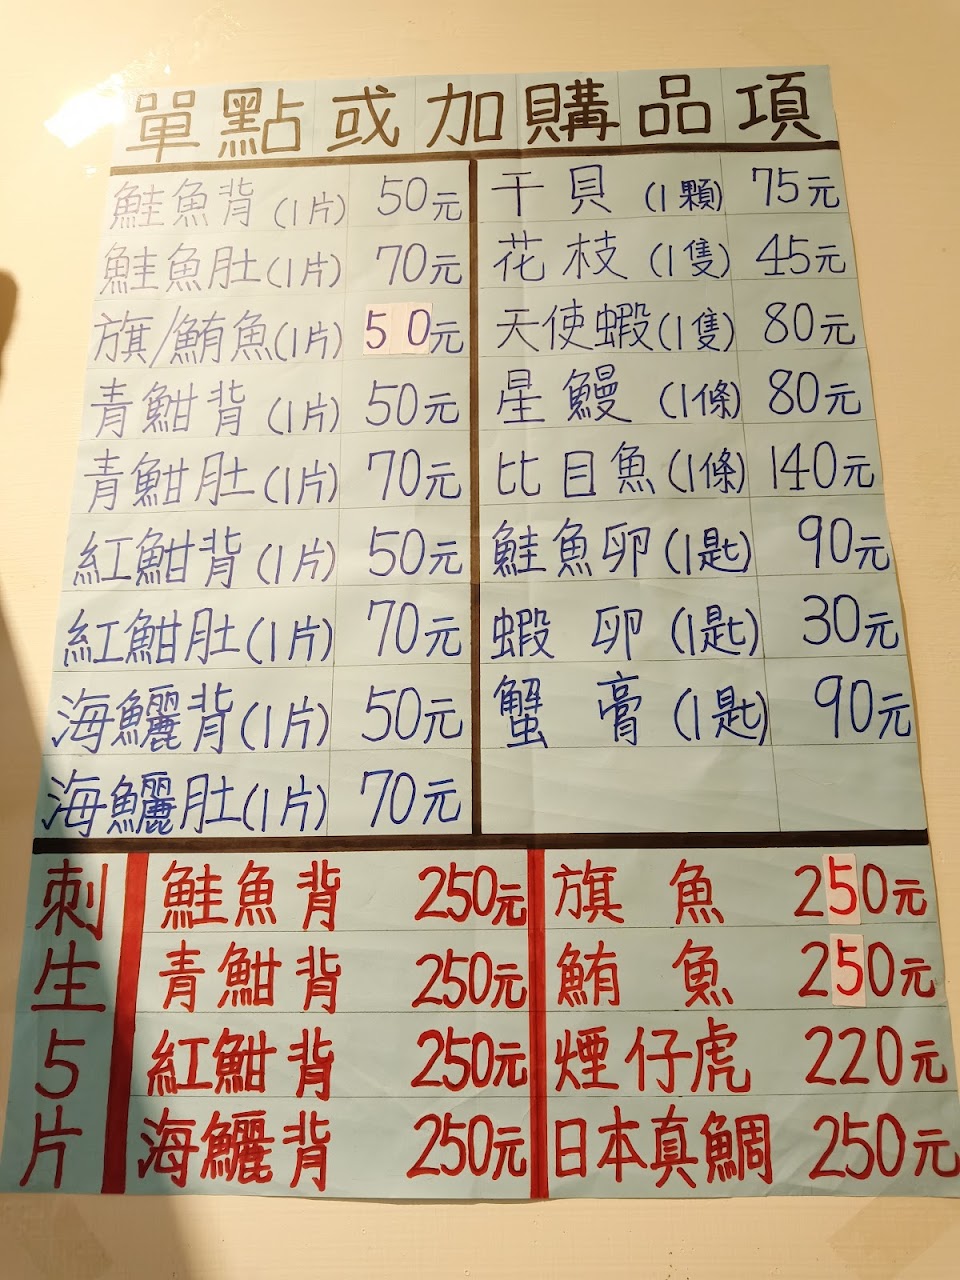 單點或加購品項
鮭魚背(1片) 50元
鮭魚肚(1片) 70元
旗/鮪魚(1片) 50元
青魽背(1片) 50元
青魽肚(1片) 70元
紅魽背(1片) 50元
紅魽肚(1片) 70元
海鱺背(1片) 50元
海鱺肚(1片) 70元
干貝(1顆) 75元
花枝(1隻) 45元
天使蝦(1隻) 80元
星鰻(1條) 80元
比目魚(1條) 140元
鮭魚卵(1匙) 90元
蝦卵(1匙) 30元
蟹膏(1匙) 90元
刺生5片
鮭魚背 250元
青魽背 250元
紅魽背 250元
海鱺背 250元
旗魚 250元
鮪魚 250元
煙仔虎 220元
日本真鯛 250元